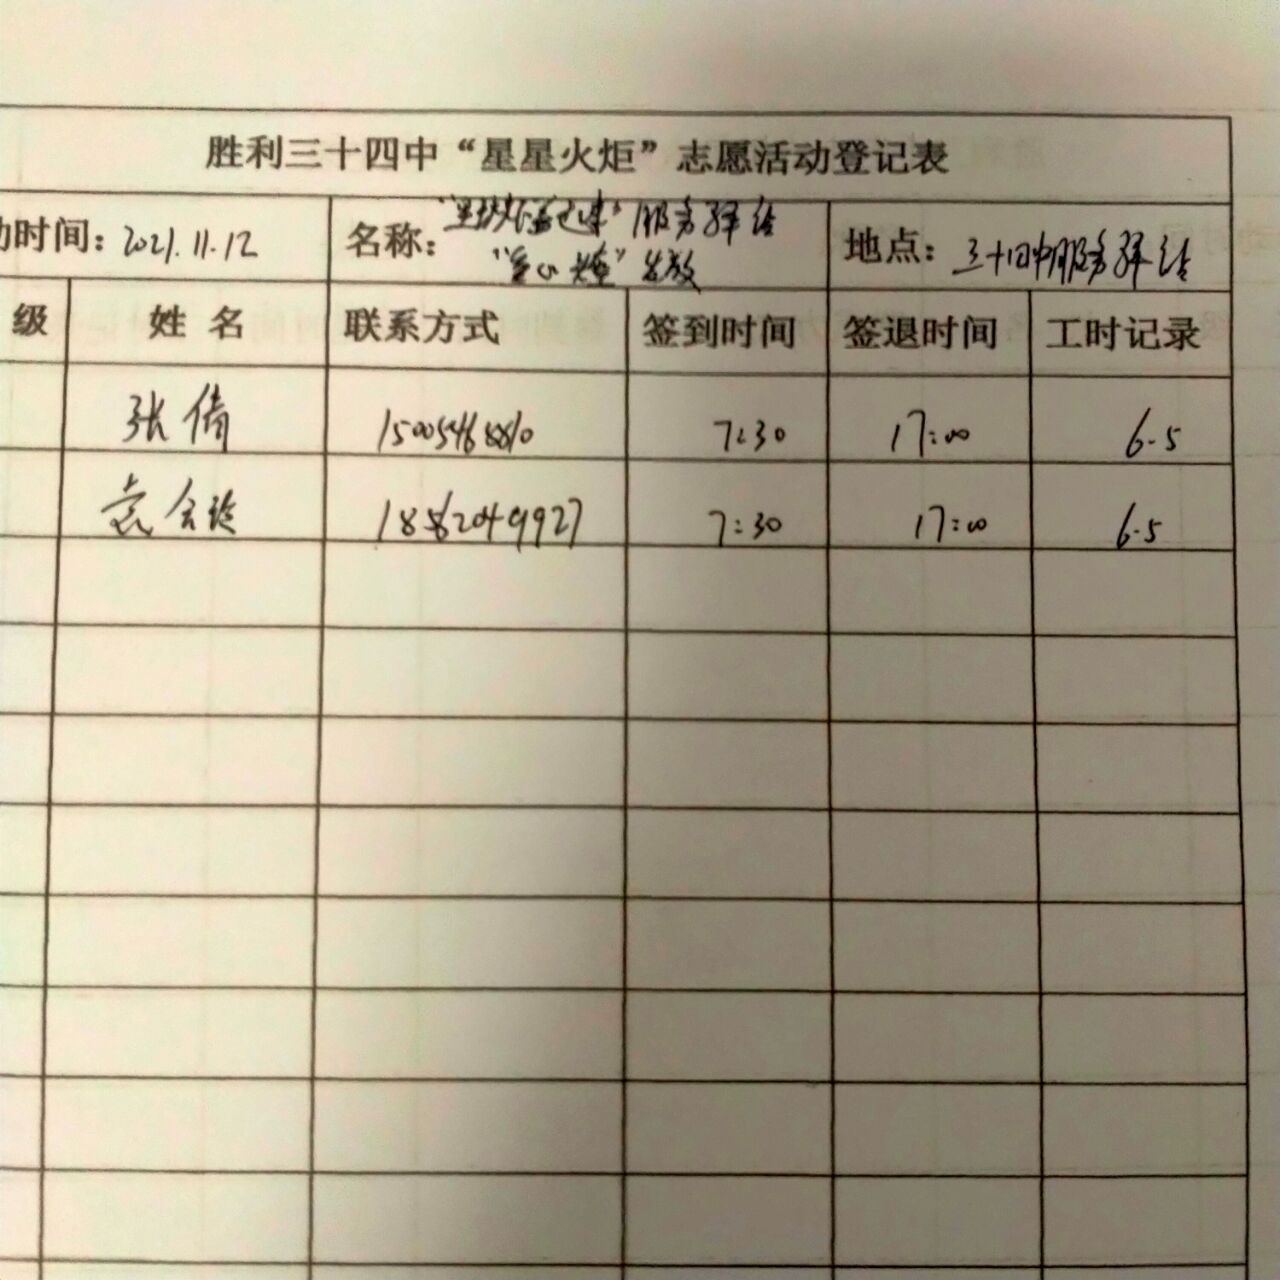 胜利三十四中“星星火炬”志愿活动登记表
动时间：2021.11.12 名称： 服务驿站 发放 地点：三十四中服务驿站
级 姓名 联系方式 签到时间 签退时间 工时记录
张倩 15005468810 7:30 17:00 6.5
袁会玲 7:30 17:00 6.5